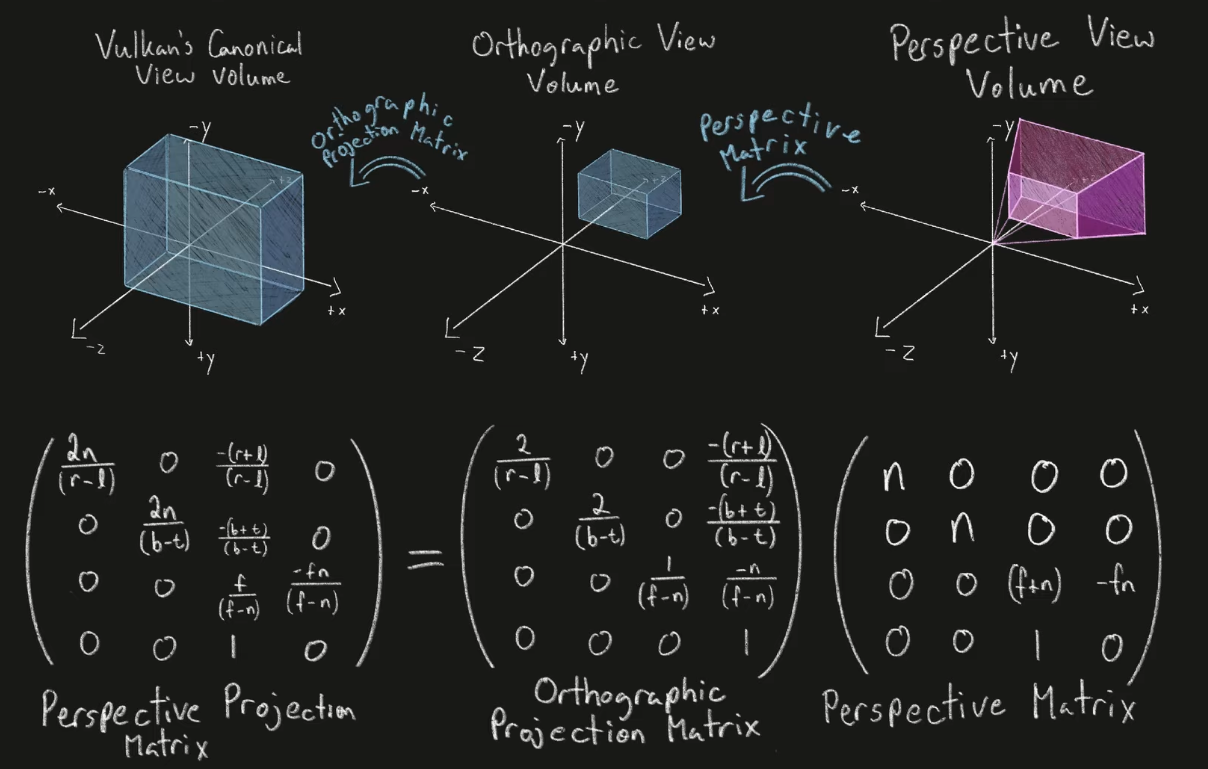 Vulkan's Canonical
View Volume
Orthographic View
Volume
Perspective View
Volume
Orthographic
Projection Matrix
Perspective
Matrix
-y
-x
+z
+x
-z
+y
-y
-x
+z
+x
-z
+y
-y
-x
+z
+x
-z
+y
2n/(r-l) 0 -(r+l)/(r-l) 0
0 2n/(b-t) -(b+t)/(b-t) 0
0 0 f/(f-n) -fn/(f-n)
0 0 1 0
=
2/(r-l) 0 0 -(r+l)/(r-l)
0 2/(b-t) 0 -(b+t)/(b-t)
0 0 1/(f-n) -n/(f-n)
0 0 0 1
n 0 0 0
0 n 0 0
0 0 (f+n) -fn
0 0 1 0
Perspective Projection
Matrix
Orthographic
Projection Matrix
Perspective Matrix